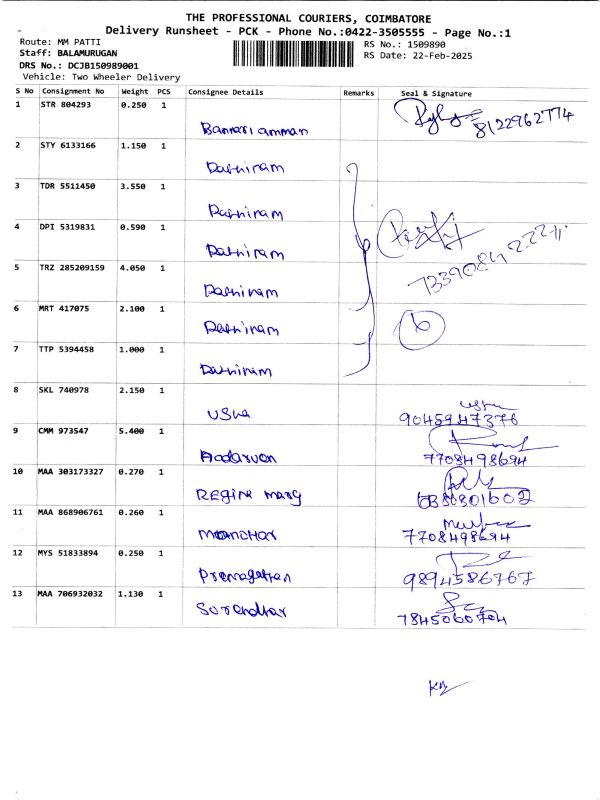 THE PROFESSIONAL COURIERS, COIMBATORE
Delivery Runsheet - PCK - Phone No.:0422-3505555 - Page No.:1
Route: MM PATTI
RS No.: 1509890
Staff: BALAMURUGAN
RS Date: 22-Feb-2025
DRS No.: DCJB150989001
Vehicle: Two Wheeler Delivery
S No Consignment No Weight PCS Consignee Details Remarks Seal & Signature
1 STR 804293 0.250 1
8122962774
Bannari amman
2 STY 6133166 1.150 1
Dathiram
3 TDR 5511450 3.550 1
Dathiram
4 DPI 5319831 0.590 1
Dathiram
5 TRZ 285209159 4.050 1
Dathiram
6 MRT 417075 2.100 1
6
Dathiram
7 TTP 5394458 1.000 1
Dathiram
8 SKL 740978 2.150 1
Usha 9045947376
9 CMM 973547 5.400 1
7708498694
10 MAA 303173327 0.270 1
Regina marg
11 MAA 868906761 0.260 1
manohar 7708498694
12 MYS 51833894 0.250 1
9894586767
13 MAA 706932032 1.130 1
Surendhar 7845060704